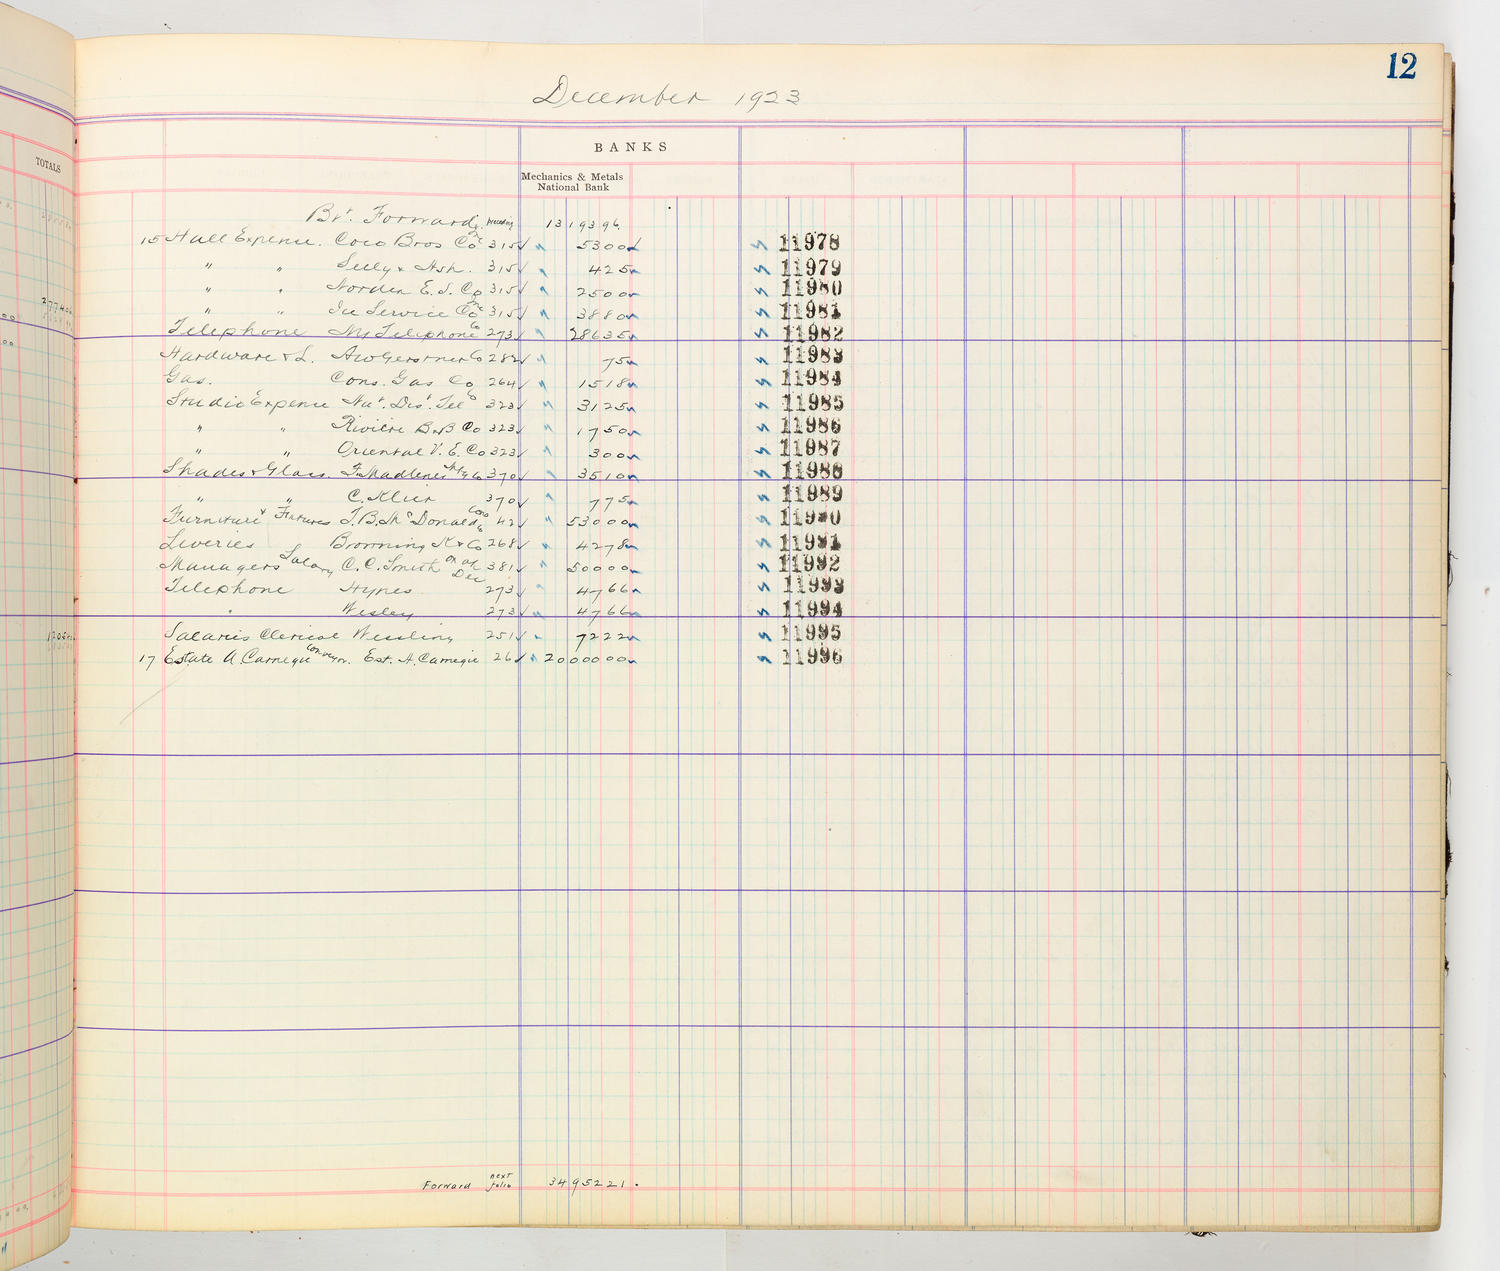 12
December 1923
TOTALS
BANKS
Mechanics & Metals
National Bank
Brt. Forward preceding 13 193 96
15 Hall Expense. Coco Bros Co Inc 315 ✓ 53 00 11978
" " Seely & Ash. 315 ✓ 4 25 11979
" " Norden E. S. Co 315 ✓ 25 00 11980
" " Ice Service Co Inc 315 ✓ 38 80 11981
Telephone NY Telephone Co 273 ✓ 286 35 11982
Hardware & L. AW Gerstner Co 282 ✓ 75 11983
Gas. Cons. Gas Co 264 ✓ 15 18 11984
Studio Expense Nat. Dist. Tel Co 323 ✓ 31 25 11985
" " Riviere B & B Co 323 ✓ 17 50 11986
" " Oriental V. E. Co 323 3 00 11987
Shades & Glass. Mfg Co 370 ✓ 35 10 11988
" " C. Klier 370 ✓ 7 75 11989
Furniture & Fixtures T. B. McDonald Cons Co 42 ✓ 530 00 11990
Liveries Browning K & Co 268 ✓ 42 78 11991
Managers Salary C. C. Smith on a/c Dec 381 ✓ 500 00 11992
Telephone Hynes 273 ✓ 47 66 11993
" Wesley 273 ✓ 47 66 11994
Salaries Clerical Wessling 251 ✓ 72 22 11995
17 Estate A. Carnegie Est. A. Carnegie 26 ✓ 20 000 00 11996
Forward next folio 34 952 21